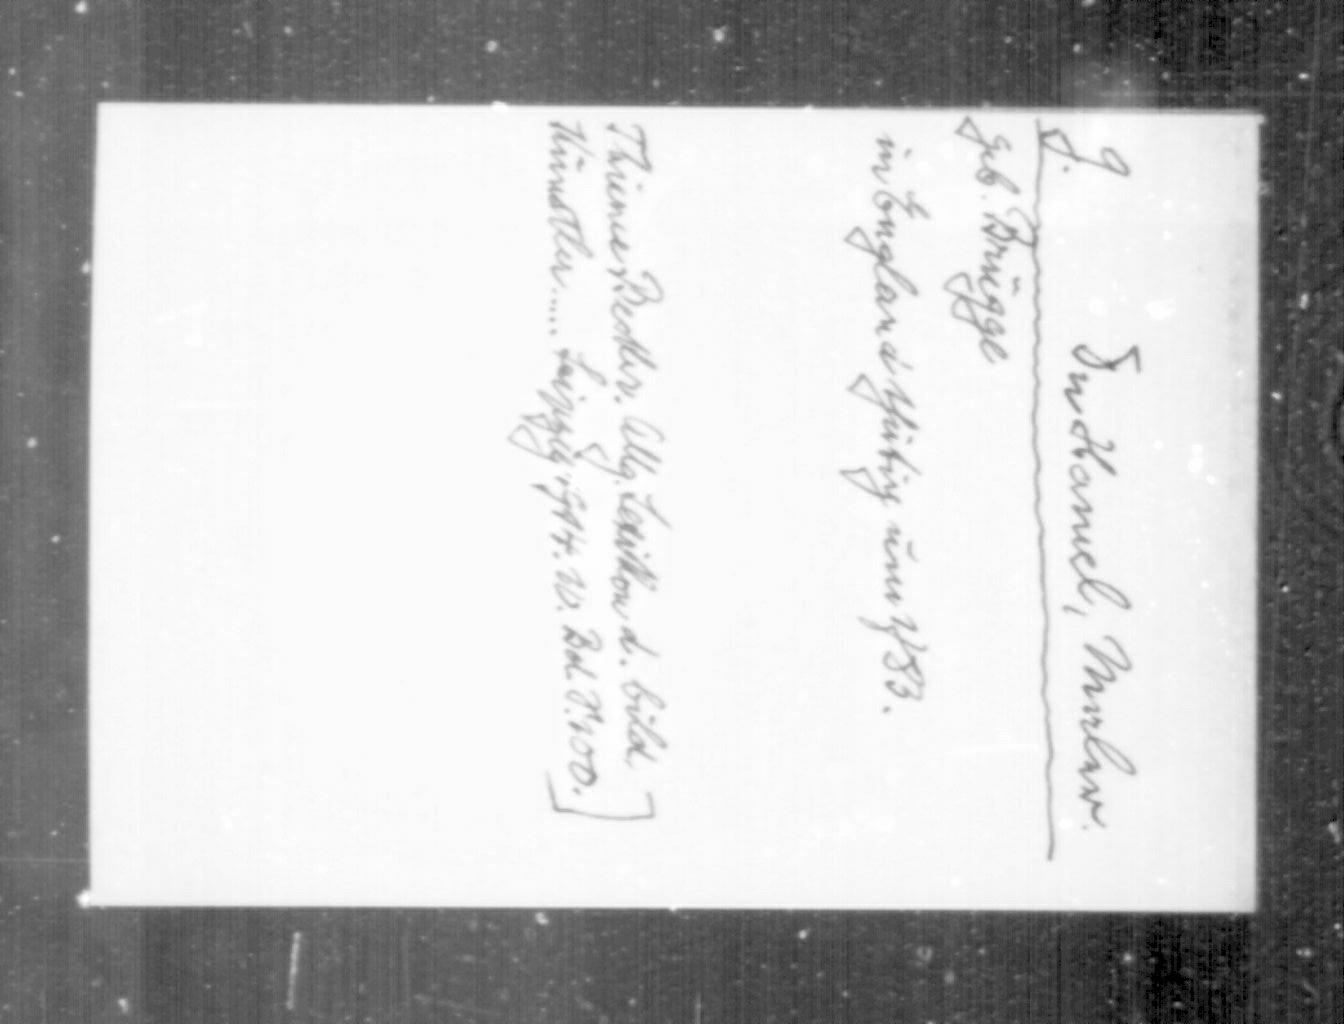 J. Du Hamel, Maler.
geb. Brügge
in England thätig um 1783.
Thieme, Becker. Allg. Lexikon d. bild.
Künstler..... Leipzig 1914. 10. Bd. S. 100.]